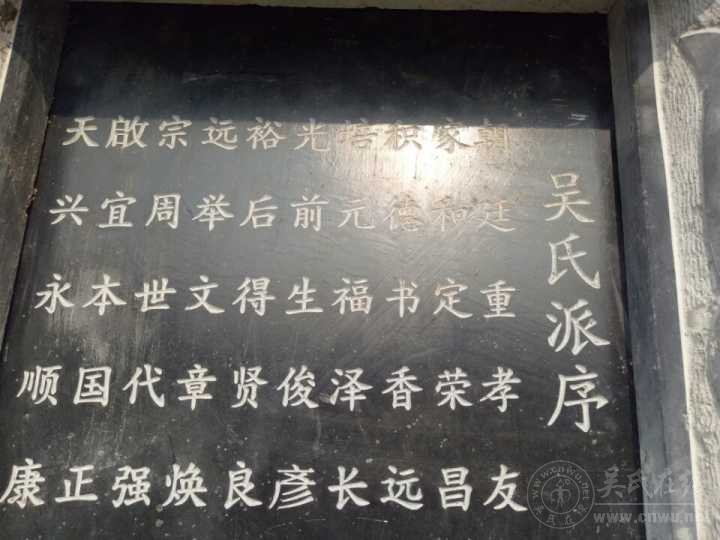 吴氏派序
朝廷重孝友
家和定荣昌
积德书香远
培元福泽长
光前生俊彦
裕后得贤良
远举文章焕
宗周世代强
啟宜本国正
天兴永顺康
吴氏在线
www.cnwu.ne